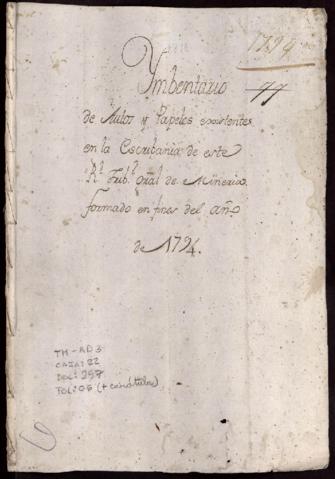 1794
Ymbentario
de Autos y Papeles existentes
en la Escribania de este
Rl. Tribl. Gral. de Mineria
formado en fines del año
de 1794.
TM-AD3
CAJA: 22
DOC: 298
FOL: 06 (+ carátula)